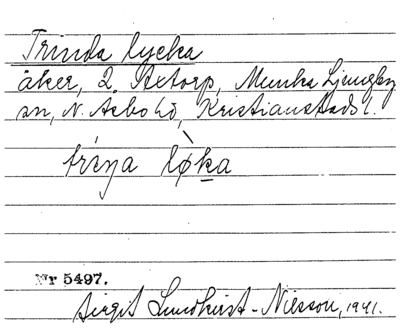 Trinda lycka
åker, 2. Axtorp, Munka Ljungby
sn, N. Åsbo hd, Kristianstads l.
trìŋa lø̀ka
Nr 5497.
Birgit Lundkvist-Nilsson, 1941.